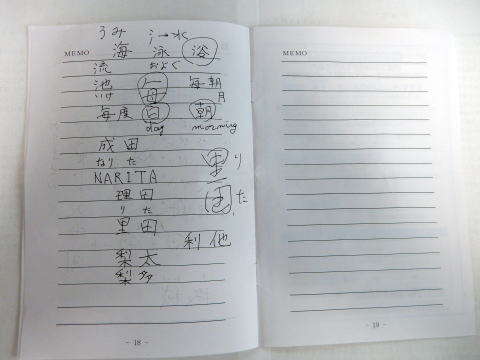 うみ 氵→水
MEMO 海 泳 浴
流 およぐ
池 𠂉 毎朝
いけ 母 月
毎度 日 朝
day morning
成田
なりた 里 り
NARITA
理田 田 た
りた
里田
利他
梨太
梨多
- 18 -
MEMO
- 19 -